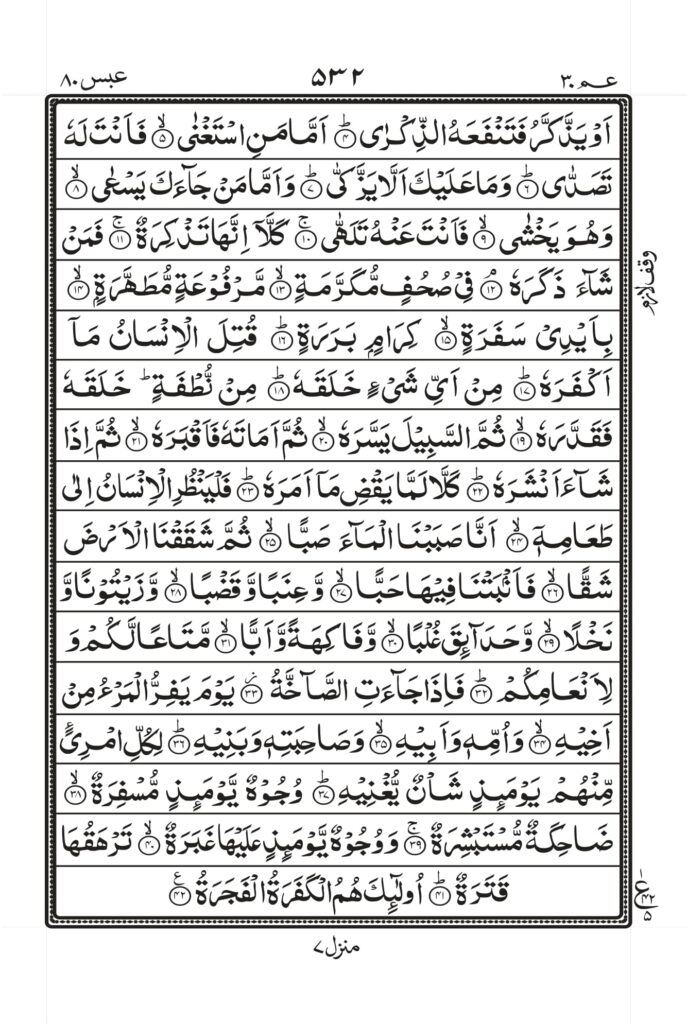 عبس ٨٠ ٥٣٢ عـم ٣٠
اَوْ يَذَّكَّرُ فَتَنْفَعَهُ الذِّكْرٰى ؕ‏﴿۴﴾ اَمَّا مَنِ اسْتَغْنٰى ۙ‏﴿۵﴾ فَاَنْتَ لَهٗ
تَصَدّٰى ؕ‏﴿۶﴾ وَمَا عَلَيْكَ اَلَّا يَزَّكّٰى ؕ‏﴿۷﴾ وَاَمَّا مَنْ جَآءَكَ يَسْعٰى ۙ‏﴿۸﴾
وَهُوَ يَخْشٰى ۙ‏﴿۹﴾ فَاَنْتَ عَنْهُ تَلَهّٰى ۚ‏﴿۱۰﴾ كَلَّاۤ اِنَّهَا تَذْكِرَةٌ ۚ‏﴿۱۱﴾ فَمَنْ
شَآءَ ذَكَرَهٗ ۘ‏﴿۱۲﴾ فِىْ صُحُفٍ مُّكَرَّمَةٍ ۙ‏﴿۱۳﴾ مَّرْفُوْعَةٍ مُّطَهَّرَةٍۭ ۙ‏﴿۱۴﴾
وقف لازم
بِاَيْدِىْ سَفَرَةٍ ۙ‏﴿۱۵﴾ كِرَامٍۭ بَرَرَةٍ ؕ‏﴿۱۶﴾ قُتِلَ الْاِنْسَانُ مَاۤ
اَكْفَرَهٗ ؕ‏﴿۱۷﴾ مِنْ اَىِّ شَىْءٍ خَلَقَهٗ ؕ‏﴿۱۸﴾ مِنْ نُّطْفَةٍ ؕ خَلَقَهٗ
فَقَدَّرَهٗ ۙ‏﴿۱۹﴾ ثُمَّ السَّبِيْلَ يَسَّرَهٗ ۙ‏﴿۲۰﴾ ثُمَّ اَمَاتَهٗ فَاَقْبَرَهٗ ۙ‏﴿۲۱﴾ ثُمَّ اِذَا
شَآءَ اَنْشَرَهٗ ؕ‏﴿۲۲﴾ كَلَّا لَمَّا يَقْضِ مَاۤ اَمَرَهٗ ؕ‏﴿۲۳﴾ فَلْيَنْظُرِ الْاِنْسَانُ اِلٰى
طَعَامِهٖۤ ۙ‏﴿۲۴﴾ اَنَّا صَبَبْنَا الْمَآءَ صَبًّا ۙ‏﴿۲۵﴾ ثُمَّ شَقَقْنَا الْاَرْضَ
شَقًّا ۙ‏﴿۲۶﴾ فَاَنْۢبَتْنَا فِيْهَا حَبًّا ۙ‏﴿۲۷﴾ وَّعِنَبًا وَّقَضْبًا ۙ‏﴿۲۸﴾ وَّزَيْتُوْنًا وَّ
نَخْلًا ۙ‏﴿۲۹﴾ وَّحَدَآئِقَ غُلْبًا ۙ‏﴿۳۰﴾ وَّفَاكِهَةً وَّاَبًّا ۙ‏﴿۳۱﴾ مَّتَاعًا لَّكُمْ وَ
لِاَنْعَامِكُمْ ؕ‏﴿۳۲﴾ فَاِذَا جَآءَتِ الصَّآخَّةُ ‏﴿۳۳﴾ يَوْمَ يَفِرُّ الْمَرْءُ مِنْ
اَخِيْهِ ۙ‏﴿۳۴﴾ وَاُمِّهٖ وَاَبِيْهِ ۙ‏﴿۳۵﴾ وَصَاحِبَتِهٖ وَبَنِيْهِ ؕ‏﴿۳۶﴾ لِكُلِّ امْرِئٍ
مِّنْهُمْ يَوْمَئِذٍ شَاْنٌ يُّغْنِيْهِ ؕ‏﴿۳۷﴾ وُجُوْهٌ يَّوْمَئِذٍ مُّسْفِرَةٌ ۙ‏﴿۳۸﴾
ضَاحِكَةٌ مُّسْتَبْشِرَةٌ ۚ‏﴿۳۹﴾ وَوُجُوْهٌ يَّوْمَئِذٍ عَلَيْهَا غَبَرَةٌ ۙ‏﴿۴۰﴾ تَرْهَقُهَا
قَتَرَةٌ ؕ‏﴿۴۱﴾ اُولٰٓئِكَ هُمُ الْكَفَرَةُ الْفَجَرَةُ ‏﴿۴۲﴾
ع ۴۲ ۵
منزل ٧